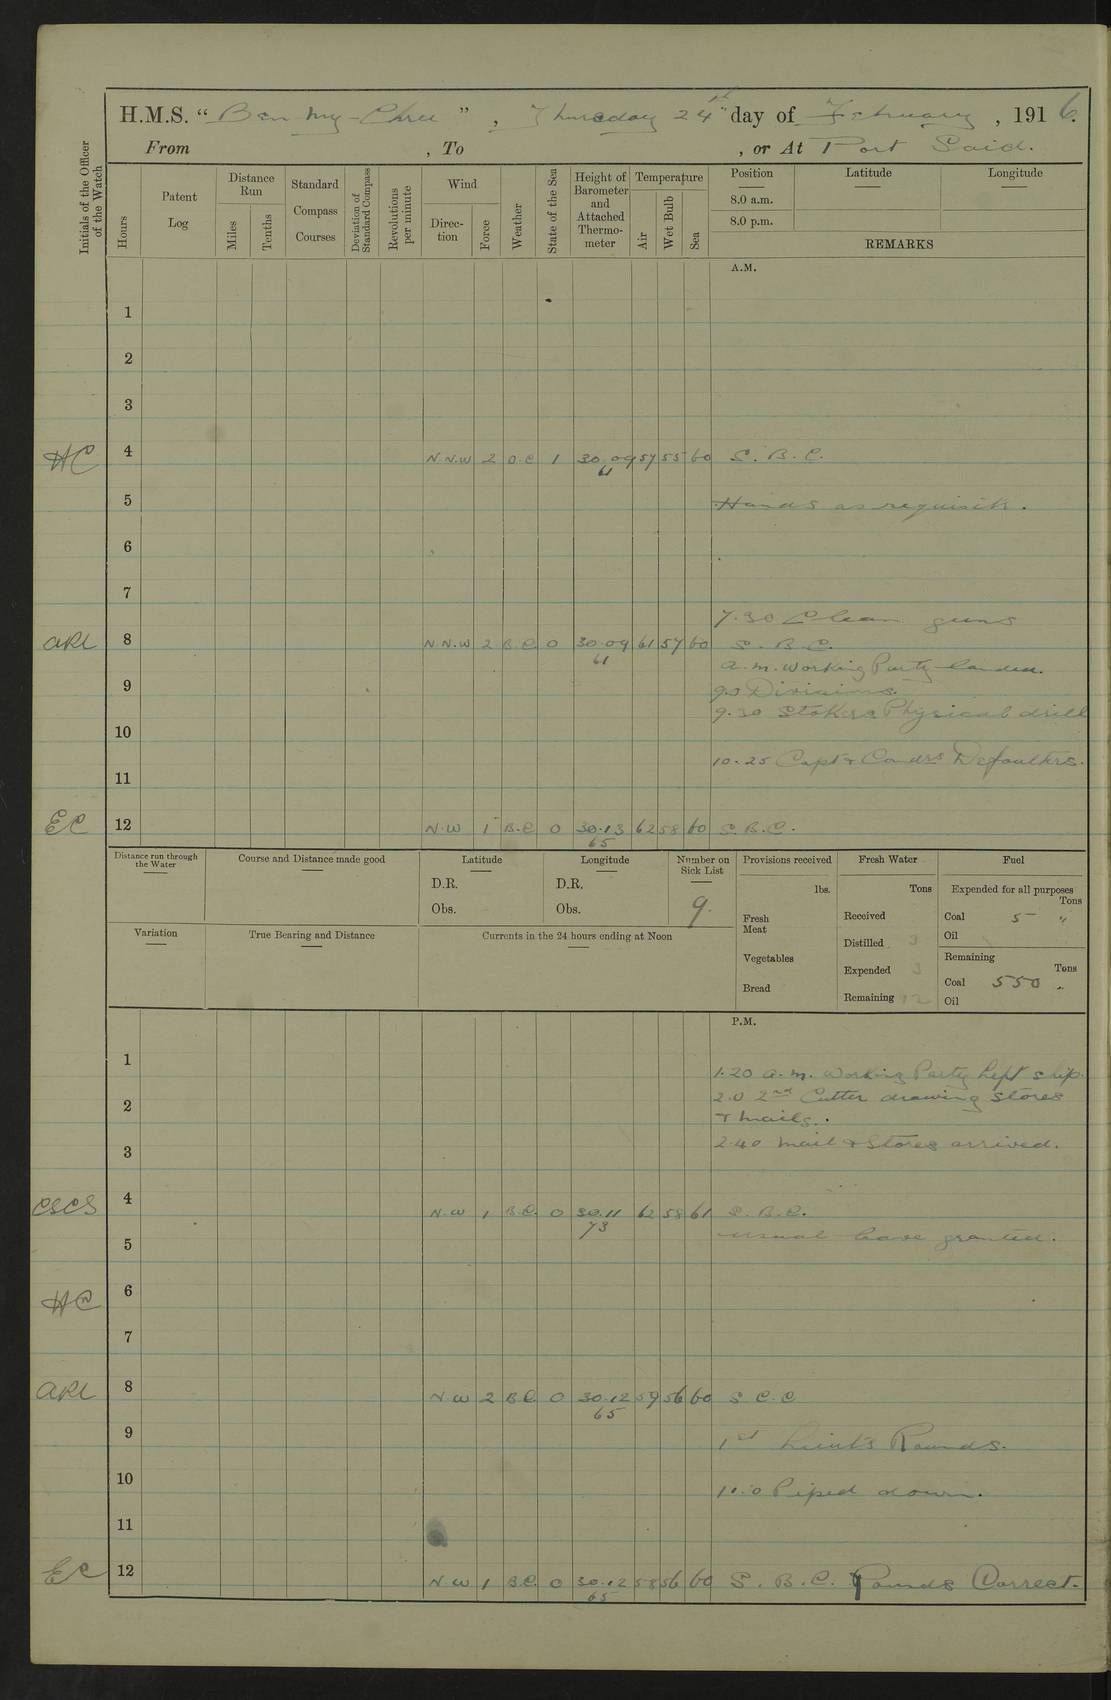 H.M.S. “ Ben-my-Chree ” , Thursday 24th day of February , 1916.
From , To , or At Port Said.
Initials of the Officer of the Watch
Hours
Patent Log
Distance Run
Miles
Tenths
Standard Compass Courses
Deviation of Standard Compass
Revolutions per minute
Wind
Direction
Force
Weather
State of the Sea
Height of Barometer and Attached Thermometer
Temperature
Air
Wet Bulb
Sea
Position
Latitude
Longitude
8.0 a.m.
8.0 p.m.
REMARKS
A.M.
1
2
3
HC 4 N.N.W 2 O.C 1 30.09 57 55 60 S. B. C.
61
5 Hands as requisite.
6
7
7.30 Clean guns
ARL 8 N.N.W 2 B.C. 0 30.09 61 57 60 S. B. C.
61
a.m. Working Party landed.
9 9.0 Divisions.
9.30 Stokers Physical drill
10
10.25 Capt & Comdrs Defaulters.
11
EC 12 N.W 1 B.C 0 30.13 62 58 60 S. B. C.
65
Distance run through the Water
Course and Distance made good
Latitude
D.R.
Obs.
Longitude
D.R.
Obs.
Number on Sick List
9.
Provisions received
lbs.
Fresh Meat
Vegetables
Bread
Fresh Water
Tons
Received
Distilled 3
Expended 3
Remaining 12
Fuel
Expended for all purposes
Tons
Coal 5 "
Oil
Remaining
Tons
Coal 550 "
Oil
Variation
True Bearing and Distance
Currents in the 24 hours ending at Noon
P.M.
1
1.20 a.m. Working Party left ship.
2 2.0 2nd Cutter drawing stores
& mails.
3 2.40 Mail & Stores arrived.
CSCS 4 N.W 1 B.C. 0 30.11 62 58 61 S. B. C.
73
5 Usual leave granted.
HC 6
7
ARL 8 N.W 2 B.C. 0 30.12 59 56 60 S. C. C
65
9 1st Lieuts Rounds.
10 10.0 Piped down.
11
EC 12 N.W 1 B.C. 0 30.12 58 56 60 S. B. C. Rounds Correct.
65